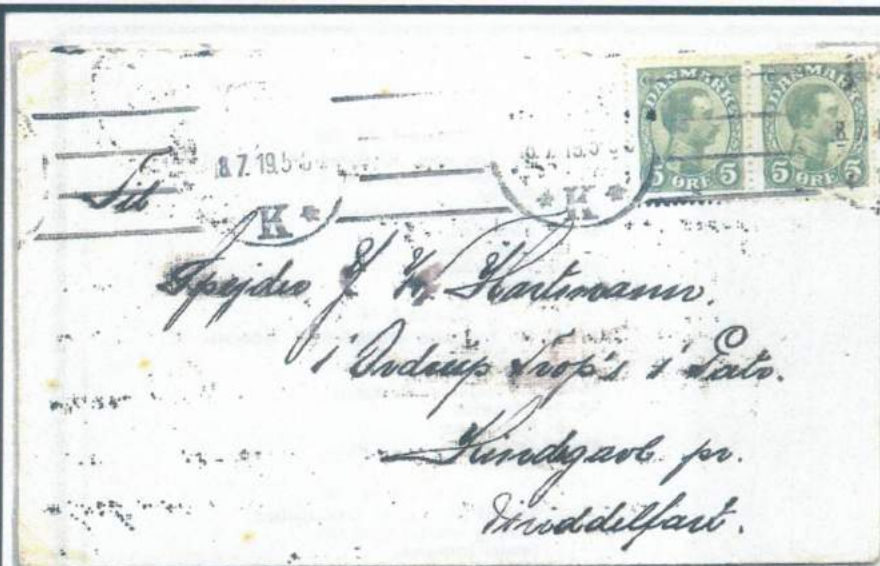 DANMARK DANMARK
5 ØRE 5 5 ØRE 5
8.7.19.5-6
8.7.19.5-6
K K
Til
Spejder J. W. Hartmann.
i Ordrup Trop's 1' Patr.
Hindsgavl pr.
Middelfart.